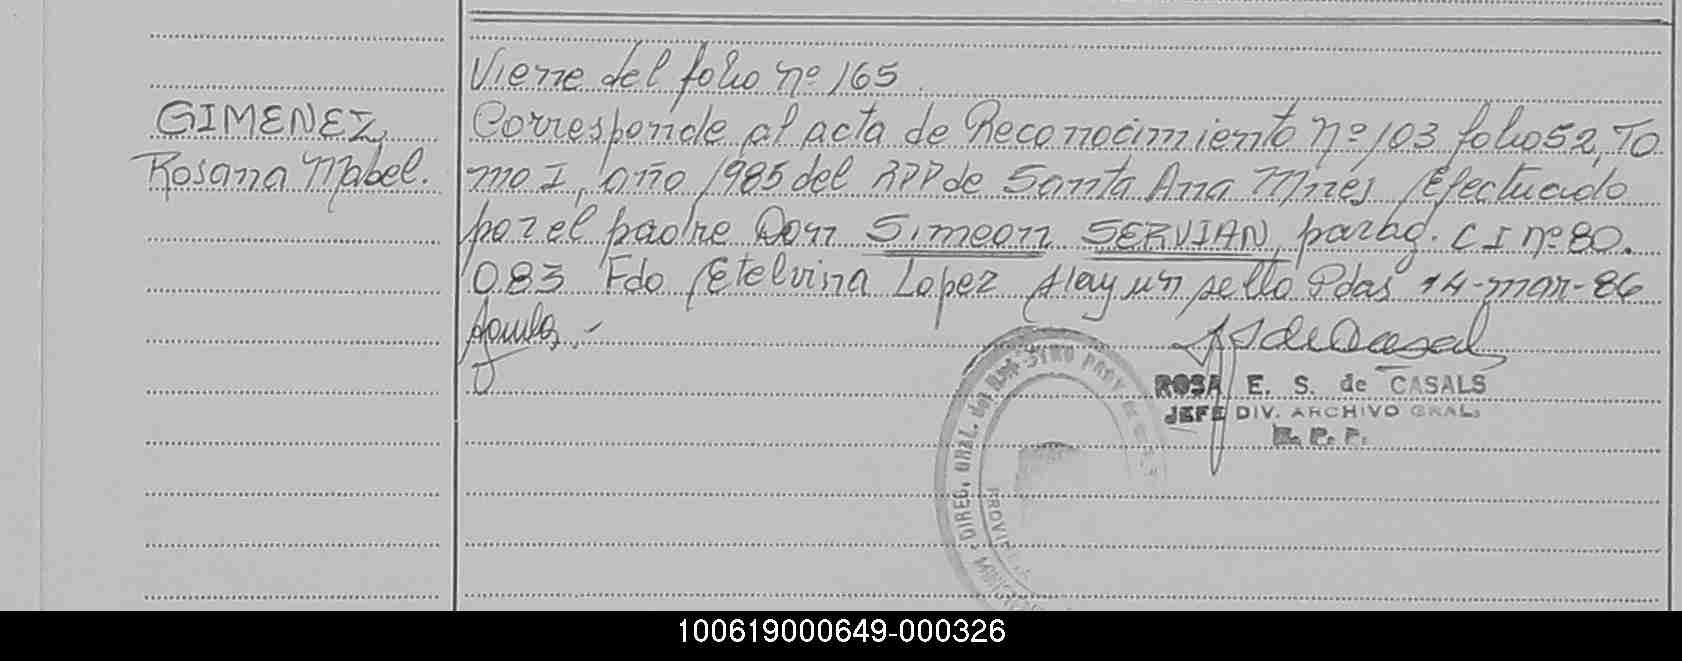 Viene del folio nº 165.
GIMENEZ
Rosana Mabel.
Corresponde al acta de Reconocimiento nº 103 folio 52, To
mo I, año 1985 del RPP de Santa Ana Mnes, Efectuado
por el padre Don Simeon SERVIAN, parag. C I nº 80.
083 Fdo Etelvina Lopez Hay un sello Pdas 14-mar-86
ROSA E. S. de CASALS
JEFE DIV. ARCHIVO GRAL.
R. P. P.
DIREC. GRAL. del REGISTRO PROV. de
100619000649-000326